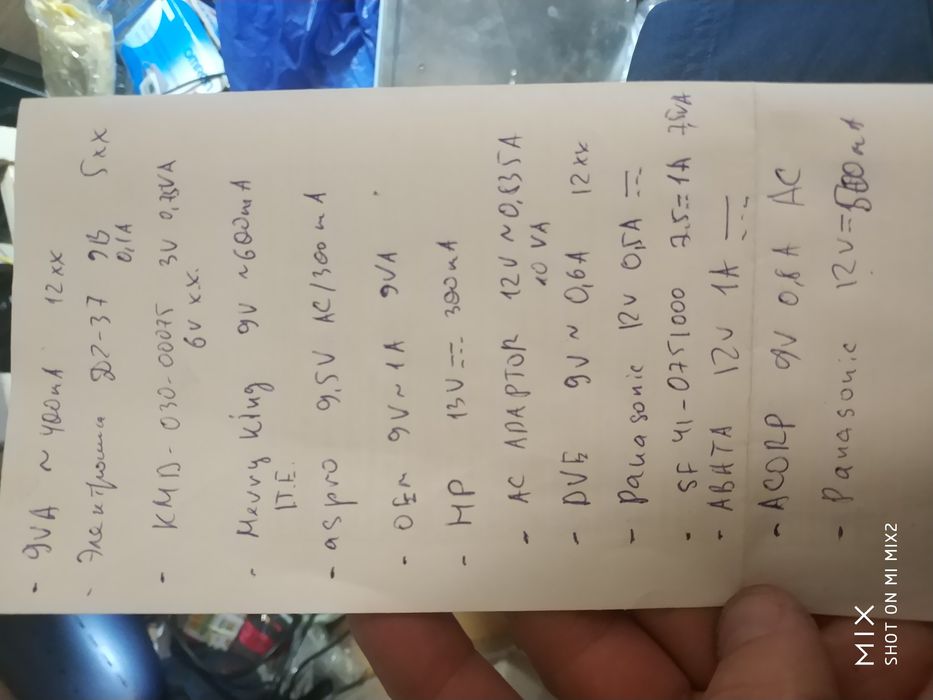 - 9VA ~ 400mA 12xx
- Электроника Д2-37 9В 5xx
0,1A
- KMD-030-00075 3V 0,75VA
6V x.x.
- Merry King 9V ~600mA
I.T.E.
- aspro 9,5V AC/300mA
- OEM 9V~1A 9VA
- HP 13V 300mA
- AC ADAPTOR 12V~0,835A
10 VA
- DVE 9V ~ 0,6A 12xx
- Panasonic 12V 0,5A
- SF 41-0751000 7.5=1A 7,5VA
- ABHTA 12V 1A
- ACORP 9V 0,8A AC
- Panasonic 12V=500mA
MIX
SHOT ON MI MIX2